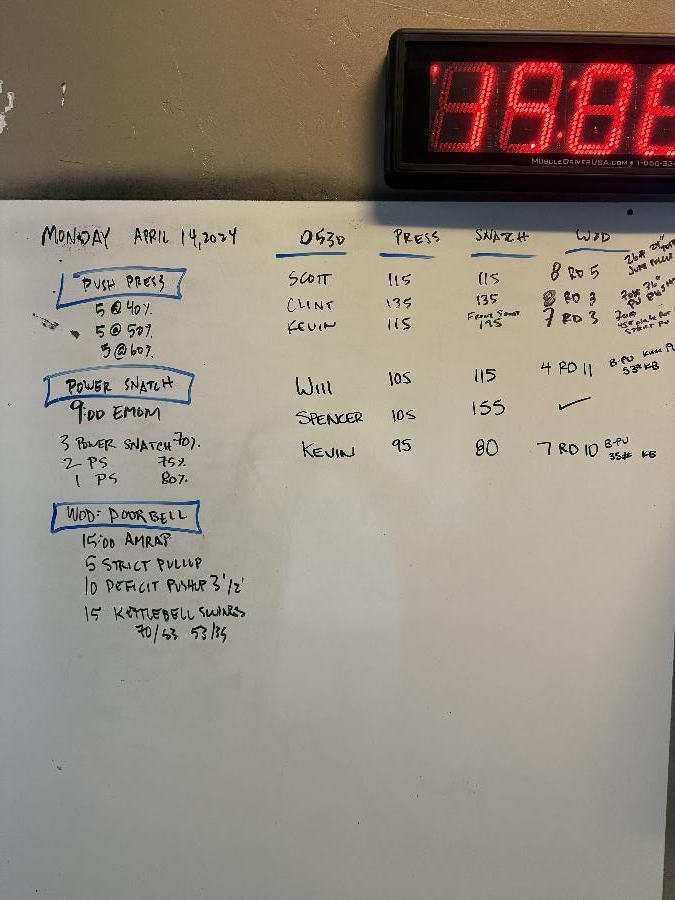 15:0
MUSCLEDRIVERUSA.COM • 1-866-33
MONDAY APRIL 14, 2024 0530 PRESS SNATCH WOD
PUSH PRESS
5 @ 40%
5 @ 50%
5 @ 60%
POWER SNATCH
9:00 EMOM
3 POWER SNATCH 70%
2 PS 75%
1 PS 80%
WOD: DOORBELL
15:00 AMRAP
5 STRICT PULLUP
10 DEFICIT PUSHUP 3"/2"
15 KETTLEBELL SWINGS
70/53 53/35
SCOTT 115 115 8 RD 5
CLINT 135 135 8 RD 3
KEVIN 115 FRONT SQUAT 195 7 RD 3
STRICT PU
WILL 105 115 4 RD 11 B-PU KNEE PU
53# KB
SPENCER 105 155 ✓
KEVIN 95 80 7 RD 10 B-PU
35# KB